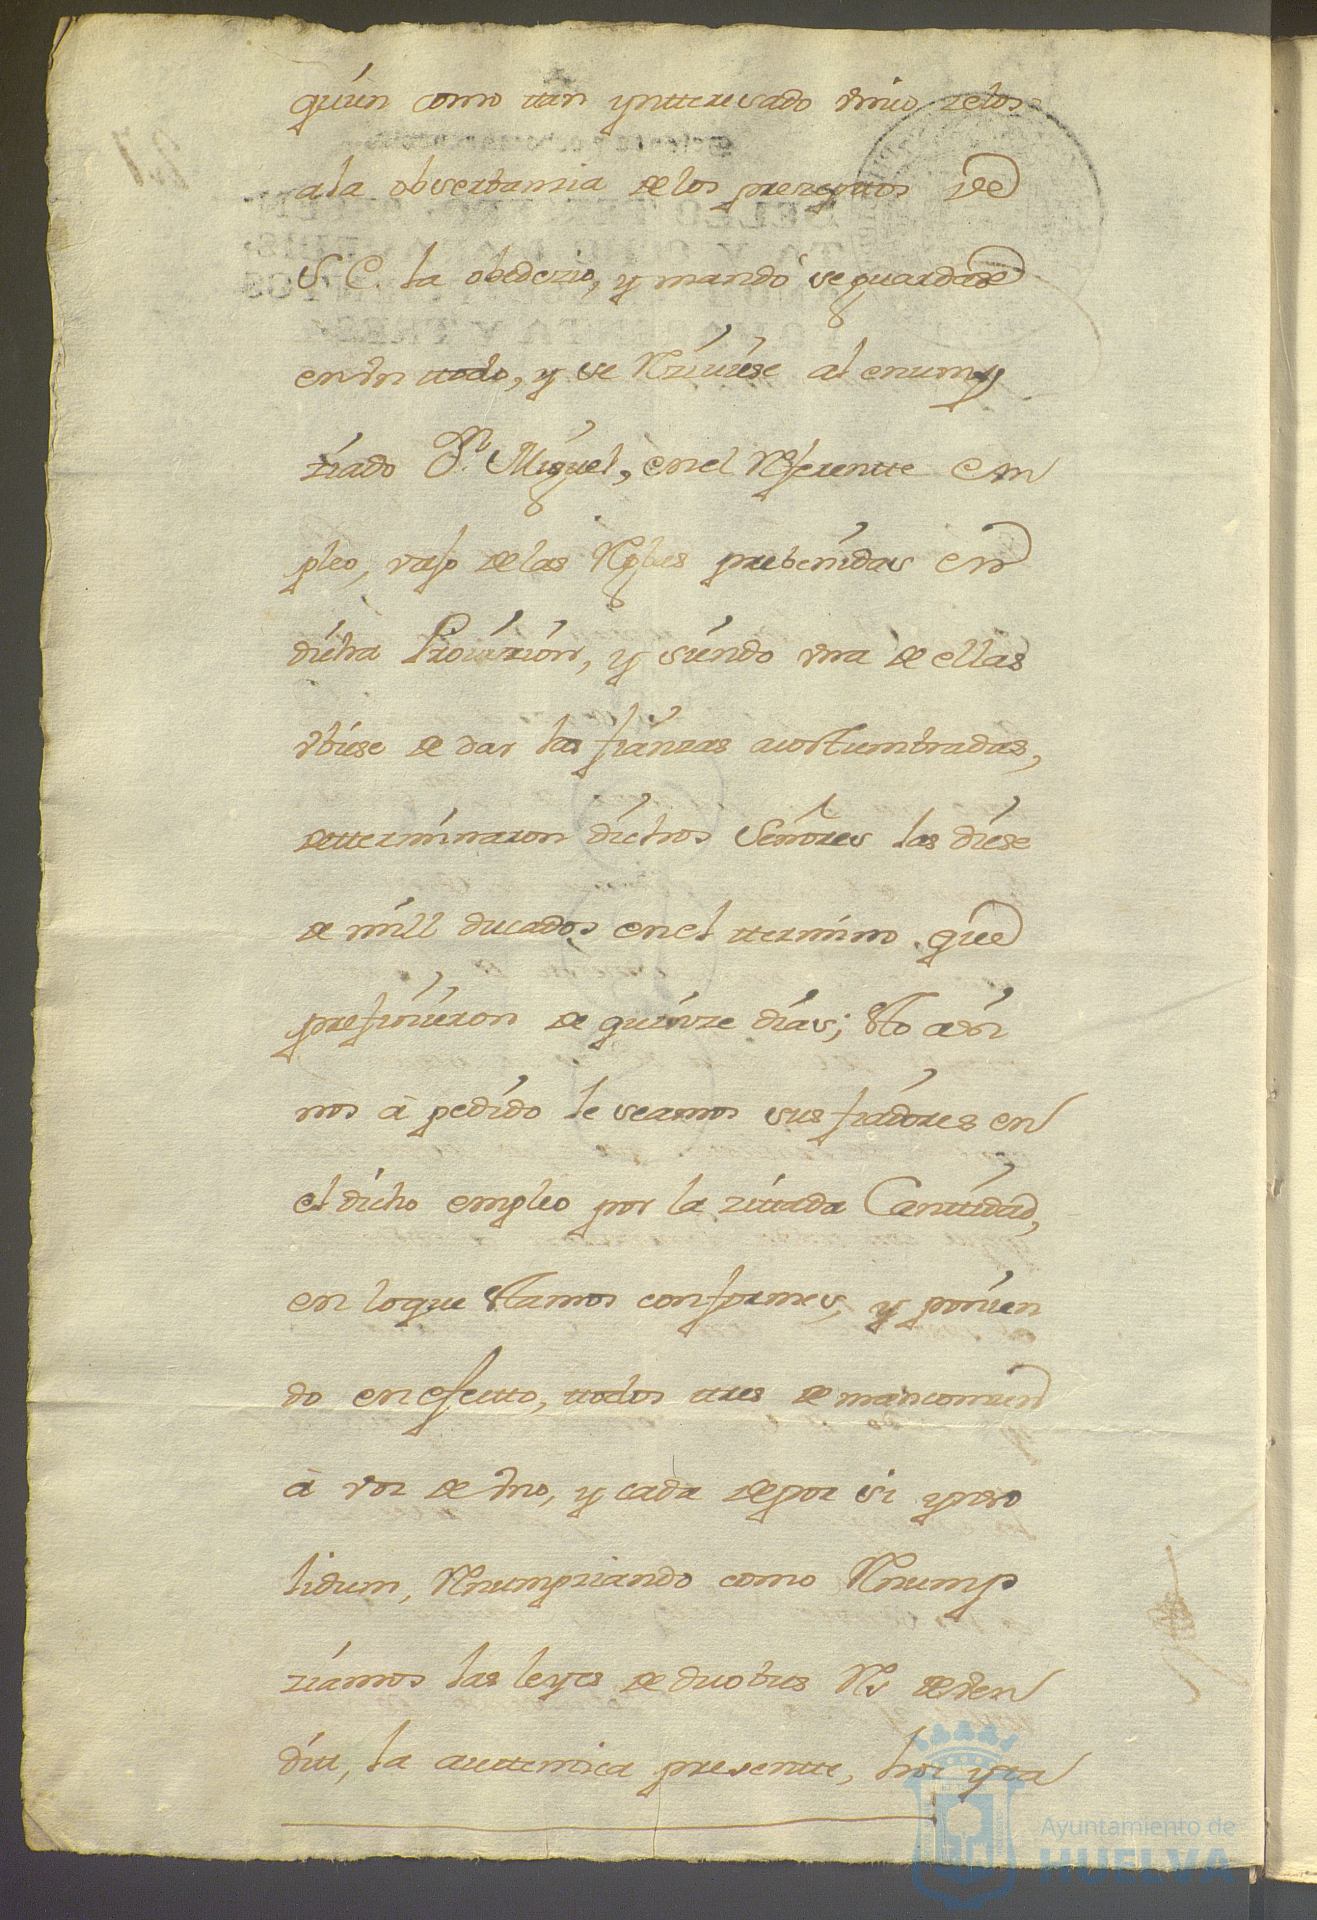 quien como ttan yntteresado vnico zelos
a la obserbanzia de los prezeptos de
S. E. la obedezio, y mandó se guardase
en vn ttodo, y se rziviese al enunp
ziado Dn. Miguel, en el Referentte en
pleo, vajo de las Reglas prebenidas en
dicha Provizion, y siendo vna de ellas
vbiese de dar las fianzas acostumbradas,
detterminaron dichos Señores las diese
de mill ducados en el ttermino que
prefinieron de quinze dias; sto a vni
nos à pedido le seamos sus fiadores en
el dicho empleo por la zittada Canttidad,
en lo que stamos conformes, y ponien
do en efectto, ttodos ttres de mancomun
à voz de vno, y cada de por si yn so
lidum, Renumpziando como Renump
ziamos las leyes de duobus Rs devén
ditt, la auttenica presentte, hoc yta
Ayuntamiento de
HUELVA